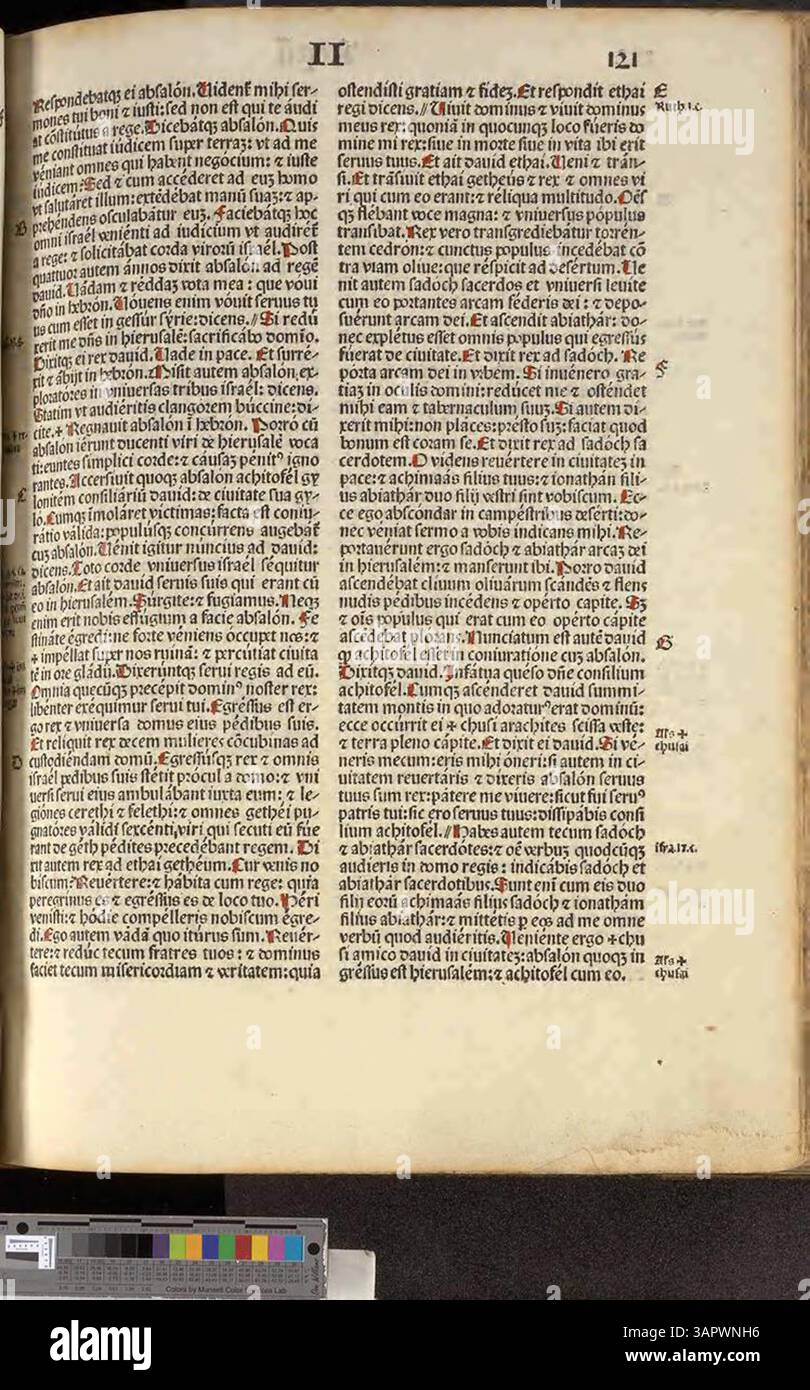 II
121
Respondebatqꝫ ei absalón. Uident̃ mihi ser-
mones tui boni ⁊ iusti: sed non est qui te audi
at cõstitutus a rege. Dicebatqꝫ absalón. Quis
me constituat iudicem super terraꝫ: vt ad me
véniant omnes qui habent negocium: ⁊ iuste
iudicem? Sed ⁊ cum accéderet ad euꝫ homo
vt salutáret illum: extẽdébat manũ suaꝫ: ⁊ ap-
prehéndens osculabátur euꝫ. Faciebátqꝫ hoc
omni israél veniénti ad iudicium vt audiret̃
a rege: ⁊ solicitábat corda virorũ israél. Post
quáttuor autem ánnos dixit absalón ad regẽ
dauid. Uádam ⁊ réddaꝫ vota mea: que voui
dño in hebrón. Uóuens enim vóuit seruus tu
us cum esset in gessúr sýrie: dicens. // Si redú
xerit me dñs in hierusalẽ: sacrificábo domĩo.
Dixitqꝫ ei rex dauid. Uade in pace. Et surré-
xit ⁊ ábijt in hebrón. Misit autem absalón ex-
ploratóres in vniuersas tribus israél: dicens.
Statim vt audiéritis clangórem búccine: di-
cite. + Regnauit absalón ĩ hebrón. Porró cũ
absalón iérunt ducenti viri de hierusalẽ voca
ti: euntes simplici corde: ⁊ cáusaꝫ penitꝰ igno
rantes. Accersiuit quoqꝫ absalón achitófel gy
lonitẽm consiliáriũ dauid: de ciuitate sua gy-
ló. Cumqꝫ ĩmoláret victimas: facta est coniu-
rátio válida: populúsqꝫ concúrrens augebat̃
cuꝫ absalón. Uénit igitur núncius ad dauid:
dicens. Toto corde vniuersus israél séquitur
absalón. Et ait dauid seruis suis qui erant cũ
eo in hierusalém. Súrgite: ⁊ fugiamus. Neqꝫ
enim erit nobis effúgium a facie absalón. Fe
stináte égredi: ne forte véniens óccupet nos: ⁊
+ impéllat super nos ruinã: ⁊ percútiat ciuita
tẽ in ore gládij. Dixerúntqꝫ serui regis ad eũ.
Omnia quecũqꝫ precépit dominꝰ noster rex:
libénter exequimur serui tui. Egréssus est er-
go rex ⁊ vniuersa domus eius pédibus suis.
Et reliquit rex decem mulieres cõcubinas ad
custodiéndam domũ. Egressúsqꝫ rex ⁊ omnis
israél pedibus suis stétit prócul a domo: ⁊ vni
uersi serui eius ambulábant iuxta eum: ⁊ le-
giónes cerethi ⁊ felethi: ⁊ omnes gethéi pu-
gnatóres válidi sexcénti, viri qui secuti eũ fúe
rant de géth pédites precedébant regem. Di
xit autem rex ad ethai gethéum. Cur venis no
biscum? Reuértere: ⁊ hábita cum rege: quia
peregrinus es ⁊ egréssus es de loco tuo. Héri
venisti: ⁊ hódie compélleris nobiscum égre-
di. Ego autem vádã quo itúrus sum. Reuér-
tere: ⁊ reduc tecum fratres tuos: ⁊ dominus
faciet tecum misericordiam ⁊ veritatem: quia
ostendisti gratiam ⁊ fideꝫ. Et respondit ethai
regi dicens. // Uiuit dominus ⁊ viuit dominus
meus rex: quoniã in quocunqꝫ loco fúeris do
mine mi rex: siue in morte siue in vita ibi erit
seruus tuus. Et ait dauid ethai. Ueni ⁊ trán-
si. Et tránsiuit ethai gethéus ⁊ rex ⁊ omnes vi
ri qui cum eo erant: ⁊ réliqua multitudo. Oẽs
qꝫ flébant voce magna: ⁊ vniuersus pópulus
transibat. Rex vero transgrediebátur torrén-
tem cedrón: ⁊ cunctus populus incedébat cõ
tra viam oliue: que réspicit ad desértum. Ue
nit autem sadóch sacerdos et vniuersi leuite
cum eo portantes arcam féderis dei: ⁊ depo-
suérunt arcam dei. Et ascendit abiathár: do-
nec explétus esset omnis populus qui egréssus
fúerat de ciuitate. Et dixit rex ad sadóch. Re
pórta arcam dei in vrbem. Si inuénero gra-
tiaꝫ in oculis domini: redúcet me ⁊ ostendet
mihi eam ⁊ tabernaculum suuꝫ. Si autem di-
xerit mihi: non pláces: presto suꝫ: faciat quod
bonum est coram se. Et dixit rex ad sadóch sa
cerdotem. O videns reuértere in ciuitateꝫ in
pace: ⁊ achimáas filius tuus: ⁊ ionathán fili-
us abiathár duo filij vestri sint vobiscum. Ec-
ce ego abscóndar in campéstribus deserti: do-
nec véniat sermo a vobis indicans mihi. Re-
portauérunt ergo sadóch ⁊ abiathár arcaꝫ dei
in hierusalém: ⁊ manserunt ibi. Porro dauid
ascendébat cliuum oliuárum scandẽs ⁊ flens
nudis pédibus incédens ⁊ opérto capite. Sꝫ
⁊ oĩs populus qui erat cum eo opérto cápite
ascẽdébat plorans. Nunciatum est autẽ dauid
ꝙ achitofel esset in coniuratióne cuꝫ absalón.
Dixitqꝫ dauid. Infátua queso dñe consilium
achitófel. Cumqꝫ ascénderet dauid summi-
tatem montis in quo adoratur erat dominũ:
ecce occurrit ei + chusi arachites scissa veste:
⁊ terra pleno cápite. Et dixit ei dauid. Si vé-
neris mecum: eris mihi óneri: si autem in ci-
uitatem reuertáris ⁊ dixeris absalón seruus
tuus sum rex: pátere me viuere: sicut fui seruꝰ
patris tui: sic ero seruus tuus: dissipábis consi
lium achitofél. // Habes autem tecum sadóch
⁊ abiathár sacerdótes: ⁊ oẽ verbuꝫ quodcũqꝫ
audieris in domo regis: indicábis sadóch et
abiathár sacerdotibus. Sunt enĩ cum eis duo
filij eorũ achimaás filius sadóch ⁊ ionathám
filius abiathár: ⁊ mittétis ꝑ eos ad me omne
verbũ quod audiéritis. Ueniente ergo + chu
si amico dauid in ciuitateꝫ: absalón quoqꝫ in
gréssus est hierusalém: ⁊ achitofél cum eo.
E
Ruth.i.c.
F
G
Ara +
chusai
Ifra.17.c.
Ara +
chusai
D
alamy
alamy
Image ID: 3APWNH6
www.alamy.com